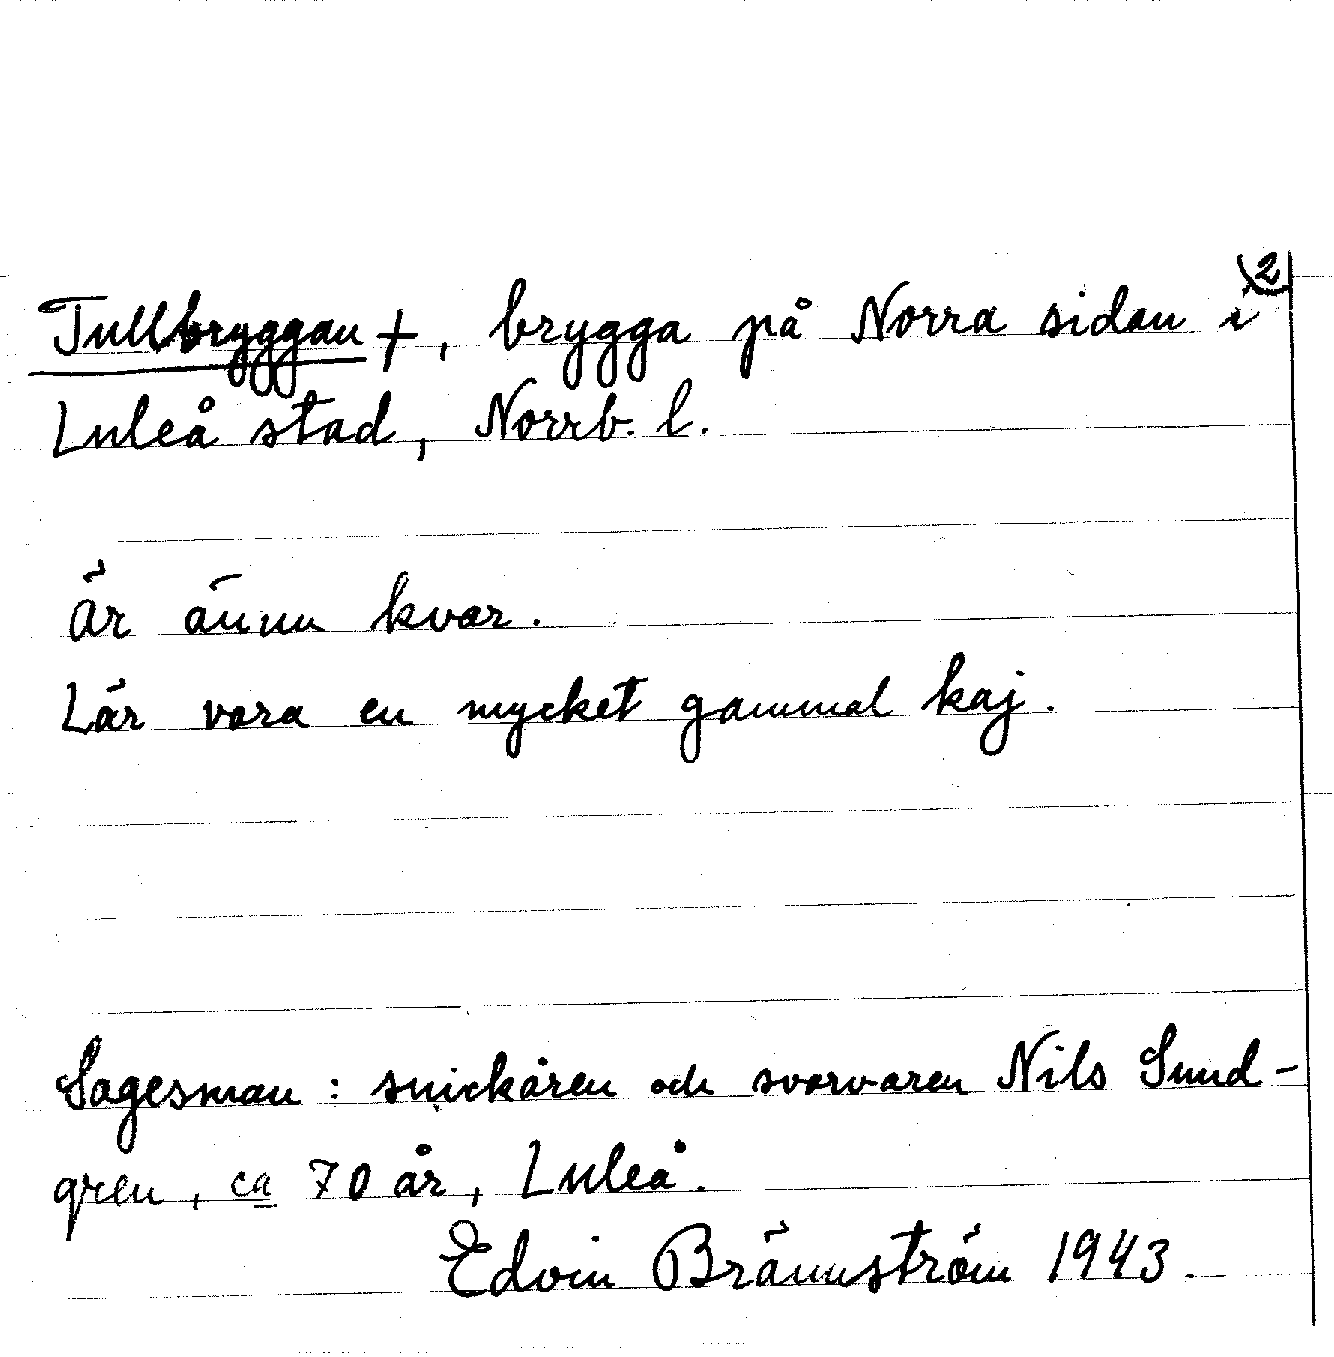 2
Tullbryggan +, brygga på Norra sidan i
Luleå stad, Norrb. l.
Är ännu kvar.
Lär vara en mycket gammal kaj.
Sagesman: snickaren och svarvaren Nils Sund-
gren, ca 70 år, Luleå.
Edvin Brännström 1943.